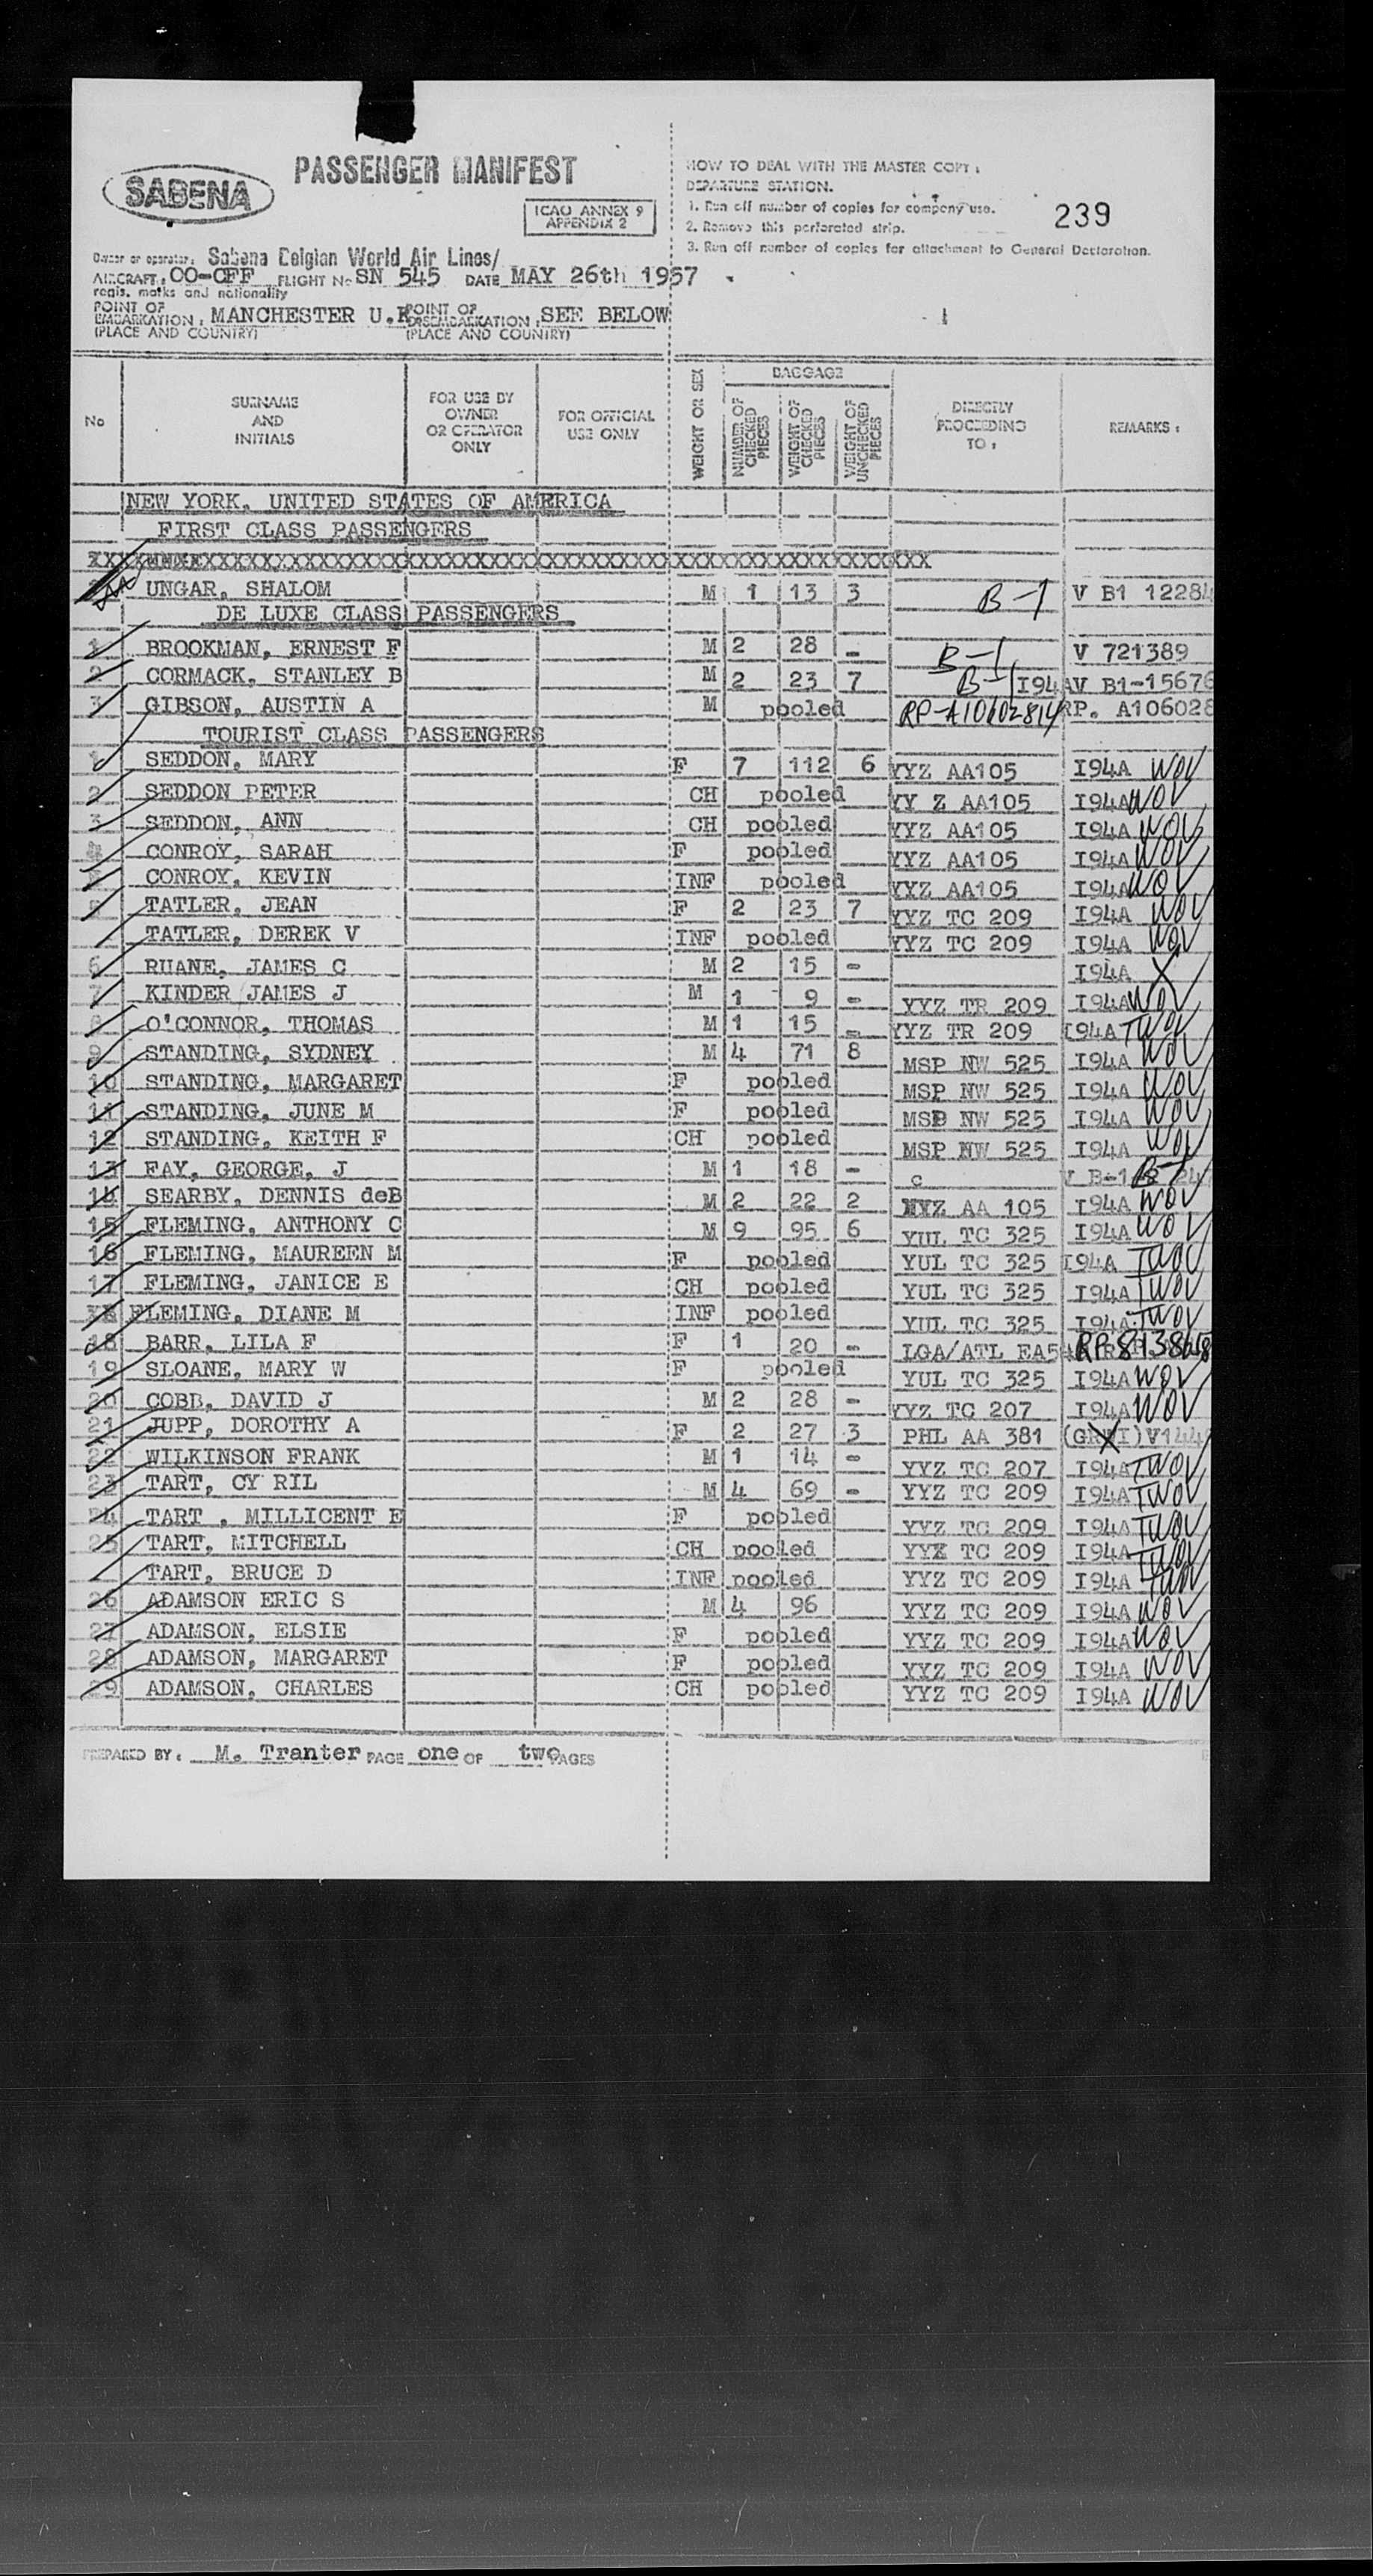 SABENA
PASSENGER MANIFEST
ICAO ANNEX 9
APPENDIX 2
HOW TO DEAL WITH THE MASTER COPY :
DEPARTURE STATION.
1. Run off number of copies for company use.
2. Remove this perforated strip.
3. Run off number of copies for attachment to General Declaration.
239
Owner or operator: Sabena Belgian World Air Lines/
AIRCRAFT: OO-CFF FLIGHT No SN 545 DATE MAY 26th 1957
regis. marks and nationality
POINT OF EMBARKATION : MANCHESTER U.K POINT OF DISEMBARKATION : SEE BELOW
(PLACE AND COUNTRY) (PLACE AND COUNTRY)
No SURNAME AND INITIALS FOR USE BY OWNER OR OPERATOR ONLY FOR OFFICIAL USE ONLY WEIGHT OR SEX BAGGAGE NUMBER OF CHECKED PIECES WEIGHT OF CHECKED PIECES WEIGHT OF UNCHECKED PIECES DIRECTLY PROCEEDING TO : REMARKS :
NEW YORK, UNITED STATES OF AMERICA
FIRST CLASS PASSENGERS
UNGAR, SHALOM M 1 13 3 B-1 V B1 12284
DE LUXE CLASS PASSENGERS
1 BROOKMAN, ERNEST F M 2 28 - B-1 V 721389
2 CORMACK, STANLEY B M 2 23 7 B-1 I94A V B1-15676
3 GIBSON, AUSTIN A M pooled RP-A10602814 RP. A106028
TOURIST CLASS PASSENGERS
1 SEDDON, MARY F 7 112 6 YYZ AA105 I94A WOV
2 SEDDON PETER CH pooled YY Z AA105 I94A WOV
3 SEDDON, ANN CH pooled YYZ AA105 I94A WOV
4 CONROY, SARAH F pooled YYZ AA105 I94A WOV
CONROY, KEVIN INF pooled YYZ AA105 I94A WOV
5 TATLER, JEAN F 2 23 7 YYZ TC 209 I94A WOV
TATLER, DEREK V INF pooled YYZ TC 209 I94A WOV
6 RUANE, JAMES C M 2 15 - I94A X
7 KINDER JAMES J M 1 9 - YYZ TR 209 I94A WOV
8 O'CONNOR, THOMAS M 1 15 - YYZ TR 209 I94A TWOV
9 STANDING, SYDNEY M 4 71 8 MSP NW 525 I94A WOV
10 STANDING, MARGARET F pooled MSP NW 525 I94A WOV
11 STANDING, JUNE M F pooled MSP NW 525 I94A WOV
12 STANDING, KEITH F CH pooled MSP NW 525 I94A WOV
13 FAY, GEORGE, J M 1 18 - c V B-1 B-1
14 SEARBY, DENNIS deB M 2 22 2 YYZ AA 105 I94A WOV
15 FLEMING, ANTHONY C M 9 95 6 YUL TC 325 I94A WOV
16 FLEMING, MAUREEN M F pooled YUL TC 325 I94A TWOV
17 FLEMING, JANICE E CH pooled YUL TC 325 I94A TWOV
FLEMING, DIANE M INF pooled YUL TC 325 I94A TWOV
18 BARR, LILA F F 1 20 - LGA/ATL EA5
19 SLOANE, MARY W F pooled YUL TC 325 I94A WOV
20 COBB, DAVID J M 2 28 - YYZ TC 207 I94A WOV
21 JUPP, DOROTHY A F 2 27 3 PHL AA 381 V144
22 WILKINSON FRANK M 1 14 - YYZ TC 207 I94A TWOV
23 TART, CY RIL M 4 69 - YYZ TC 209 I94A TWOV
24 TART , MILLICENT E F pooled YYZ TC 209 I94A TWOV
25 TART, MITCHELL CH pooled YYZ TC 209 I94A TWOV
TART, BRUCE D INF pooled YYZ TC 209 I94A TWOV
26 ADAMSON ERIC S M 4 96 YYZ TC 209 I94A WOV
27 ADAMSON, ELSIE F pooled YYZ TC 209 I94A WOV
28 ADAMSON, MARGARET F pooled YYZ TC 209 I94A WOV
29 ADAMSON, CHARLES CH pooled YYZ TC 209 I94A WOV
PREPARED BY : M. Tranter PAGE one OF two PAGES